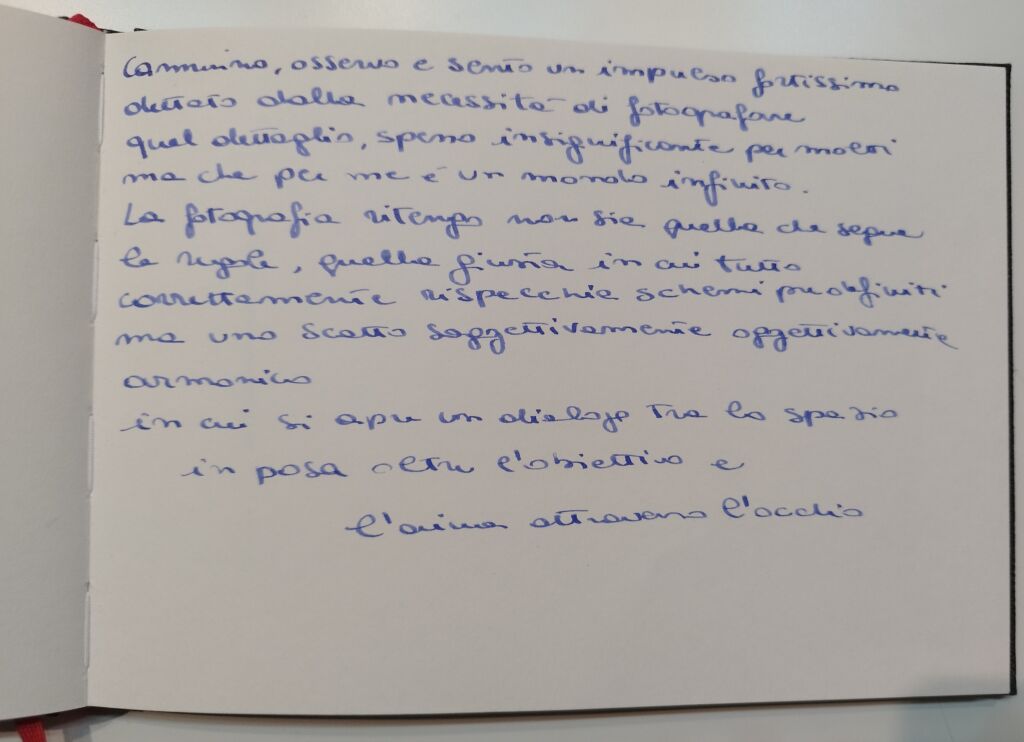 Cammino, osservo e sento un impulso fortissimo
dettato dalla necessità di fotografare
quel dettaglio, spesso insignificante per molti
ma che per me è un mondo infinito.
La fotografia ritengo non sia quella che segue
le regole, quella giusta in cui tutto
correttamente rispecchia schemi predefiniti
ma uno scatto soggettivamente oggettivamente
armonico
in cui si apre un dialogo tra lo spazio
in posa oltre l'obiettivo e
l'anima attraverso l'occhio